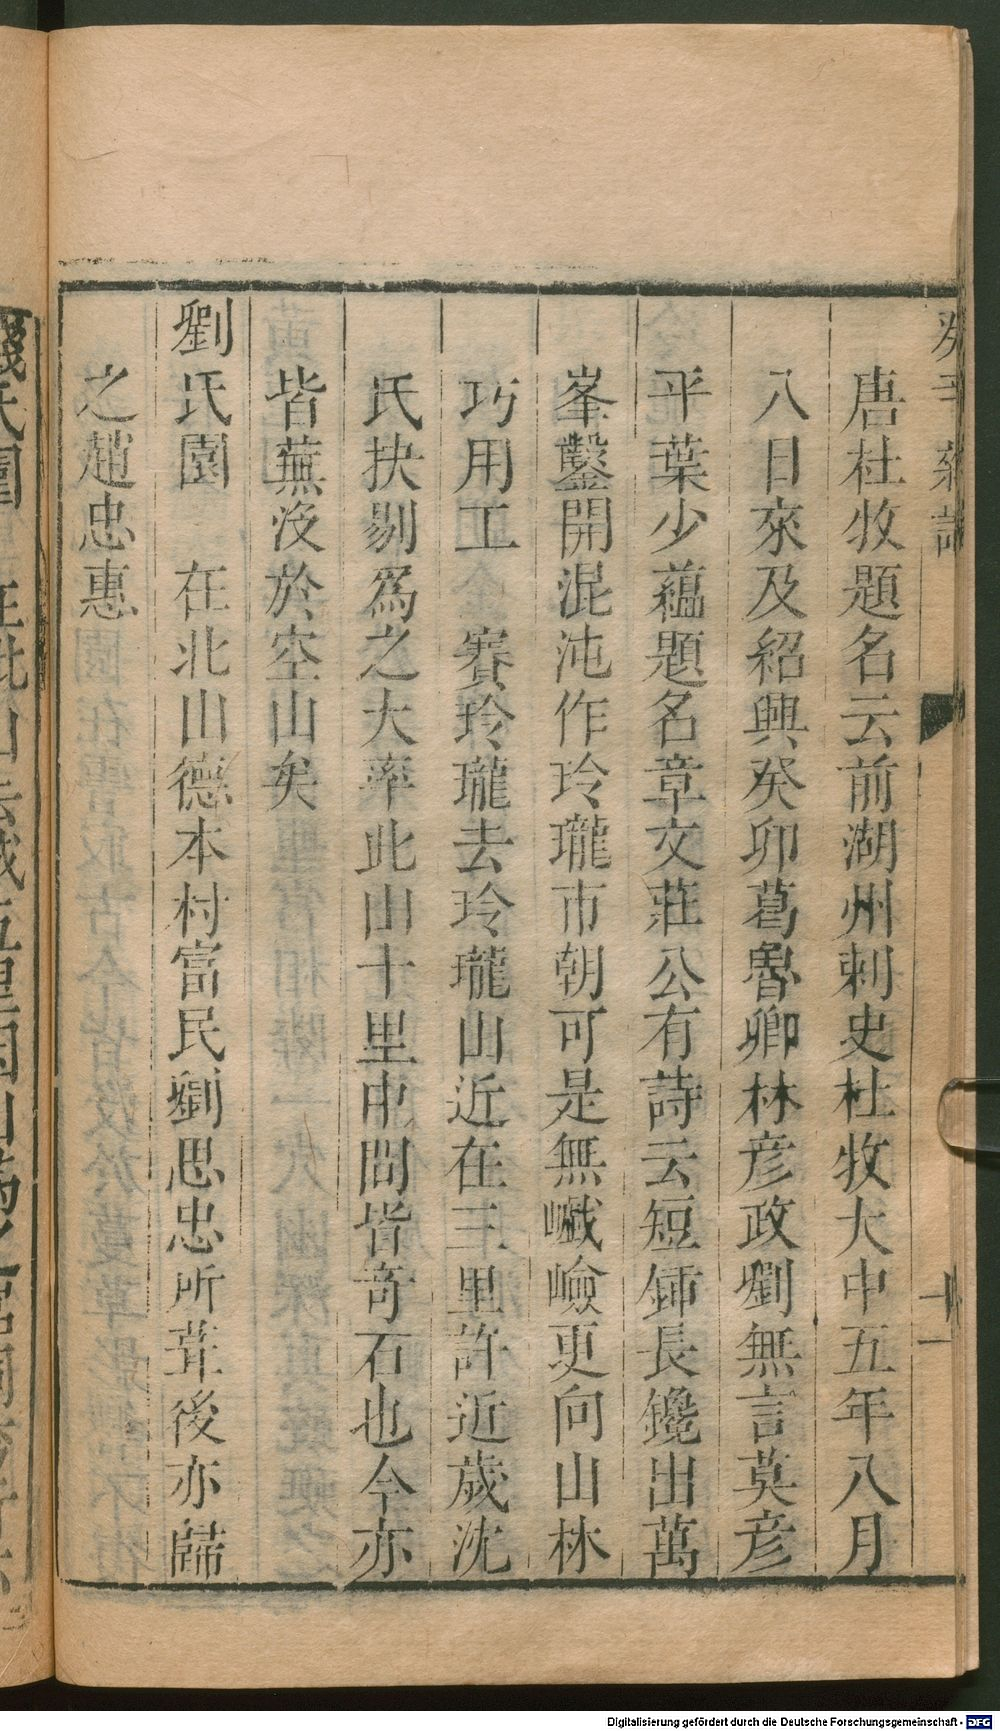 唐杜牧題名云前湖州刺史杜牧大中五年八月
八日來及紹興癸卯葛魯卿林彦政劉無言莫彦
平葉少蘊題名章文莊公有詩云短鍤長鑱出萬
峯鑿開混沌作玲瓏市朝可是無巇嶮更向山林
巧用工　賽玲瓏去玲瓏山近在三里許近歲沈
氏抉剔爲之大率此山十里中間皆奇石也今亦
皆蕪沒於空山矣
劉氏園　在北山德本村富民劉思忠所葺後亦歸
之趙忠惠
Digitalisierung gefördert durch die Deutsche Forschungsgemeinschaft - DFG